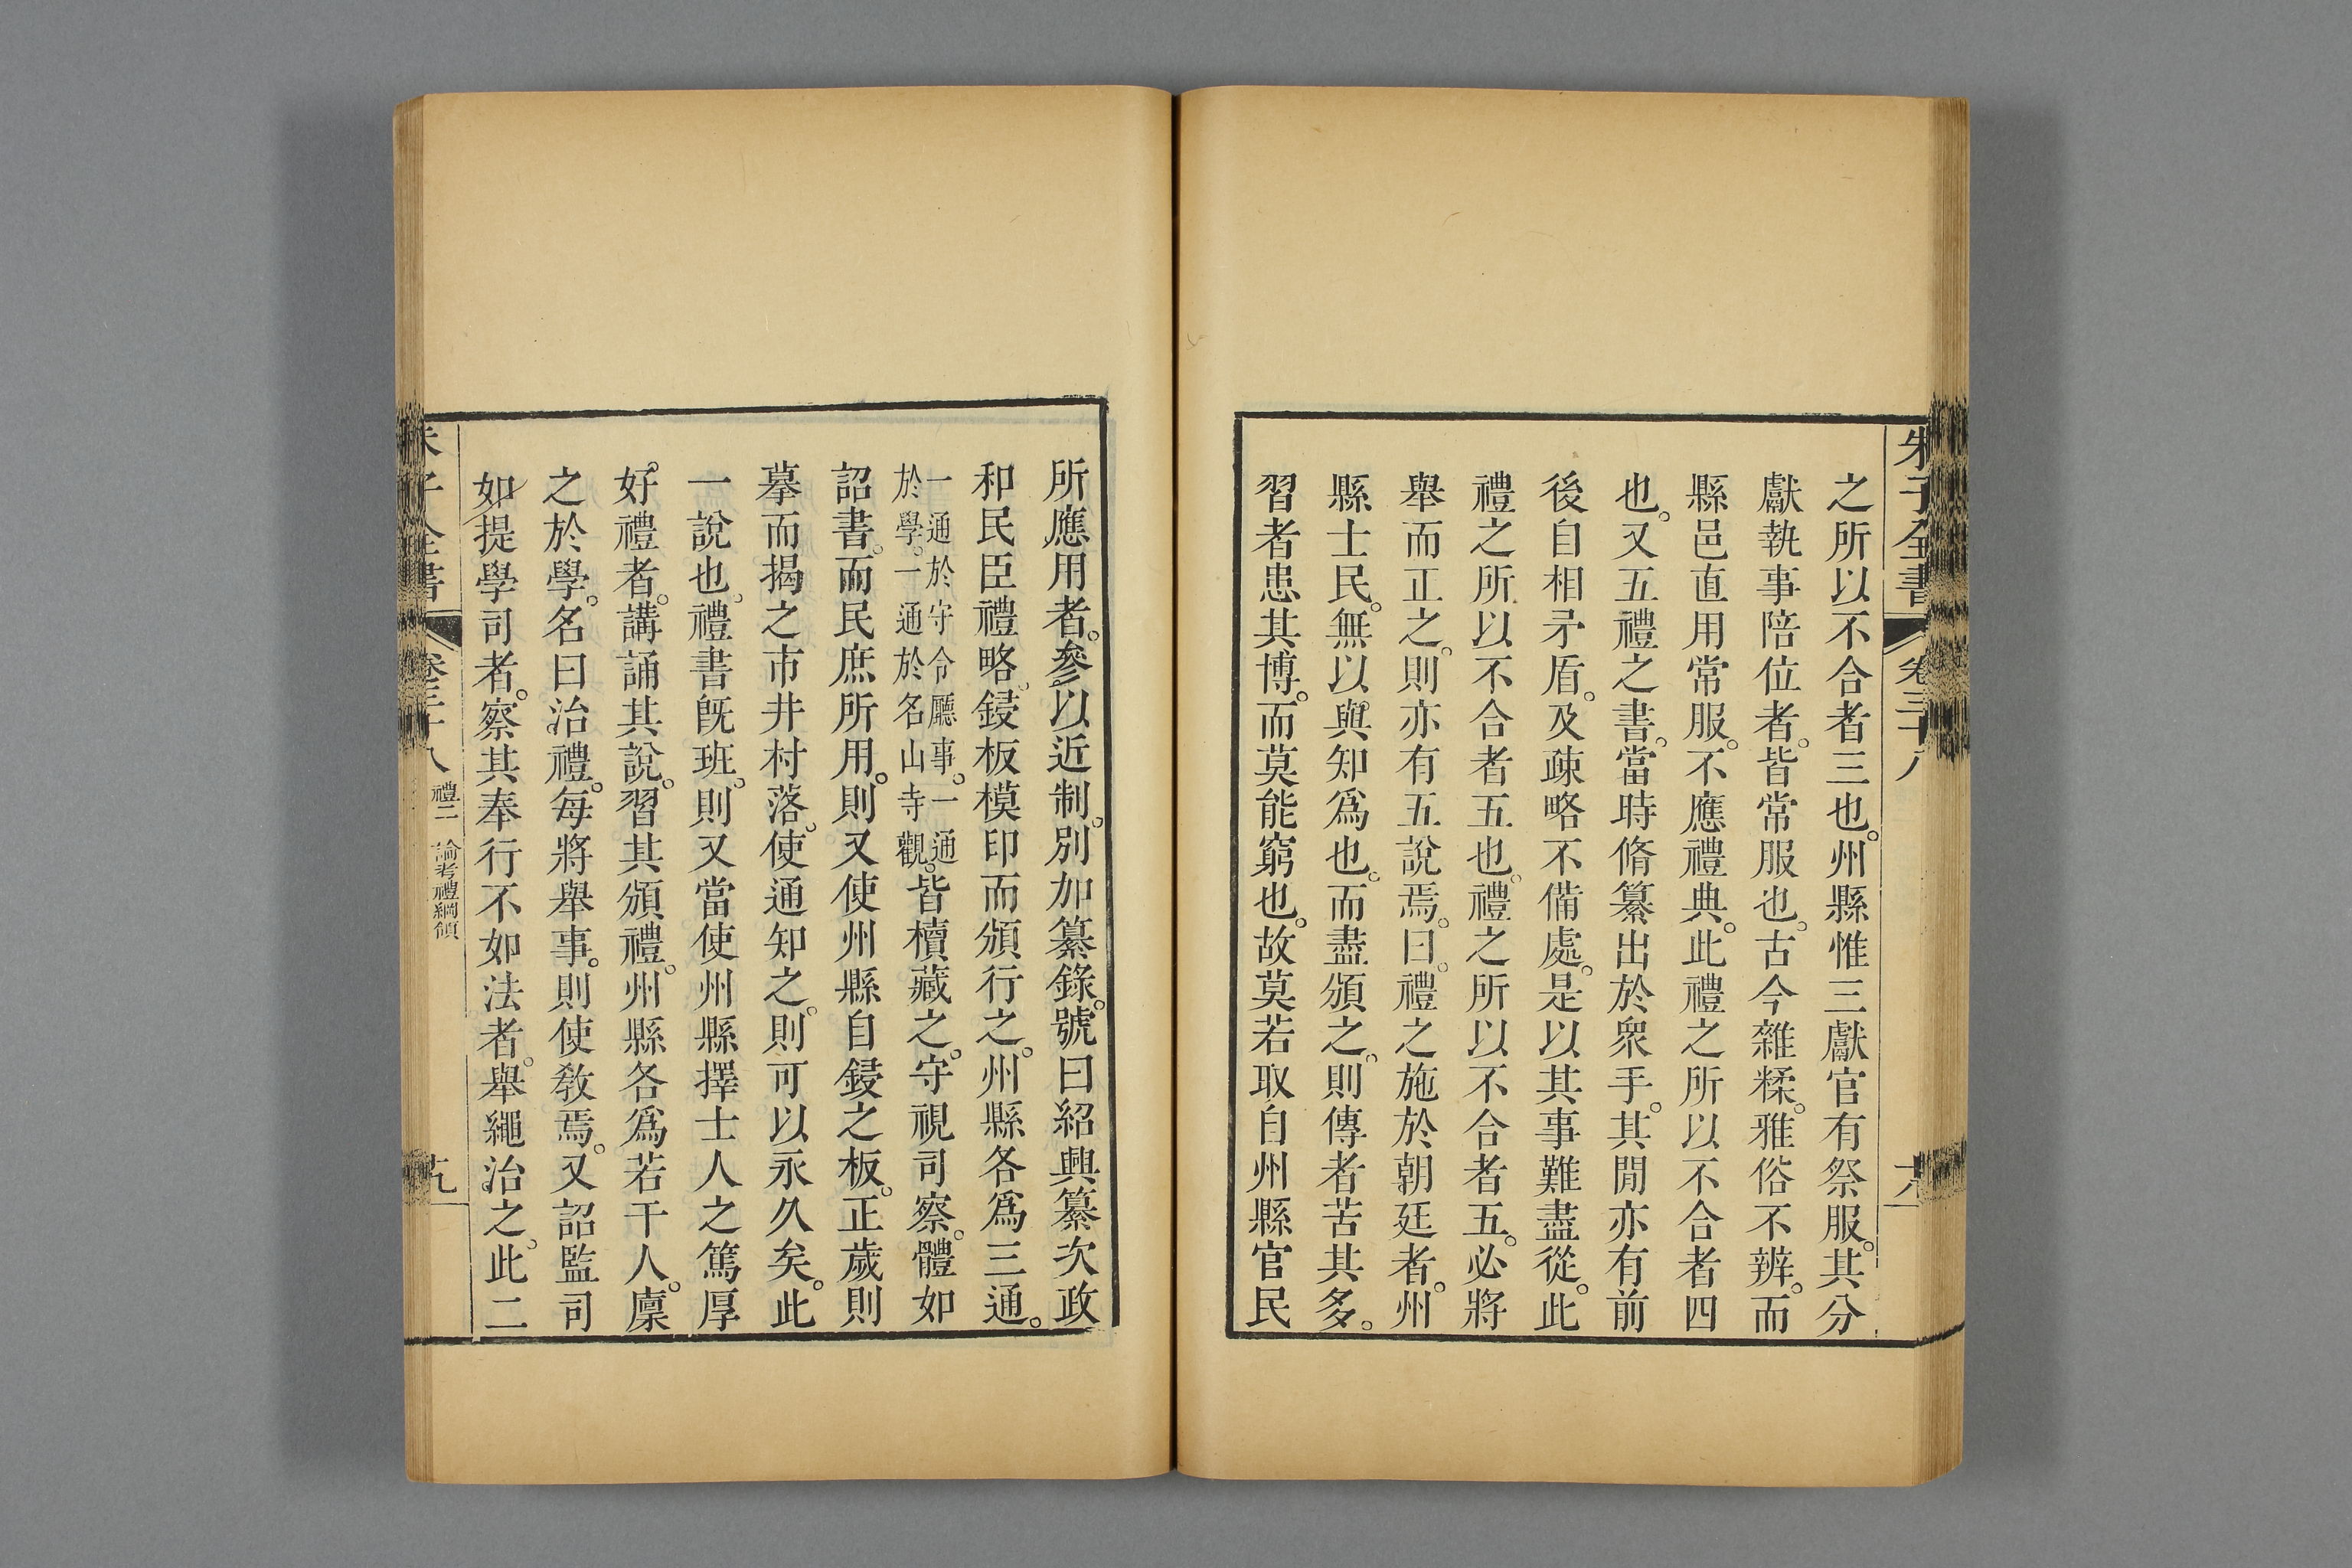 朱子全書 卷三十八
之所以不合者三也。州縣惟三獻官有祭服。其分
獻執事陪位者。皆常服也。古今雜糅。雅俗不辨。而
縣邑直用常服。不應禮典。此禮之所以不合者四
也。又五禮之書。當時脩纂出於衆手。其閒亦有前
後自相矛盾。及疎略不備處。是以其事難盡從。此
禮之所以不合者五也。禮之所以不合者五。必將
舉而正之。則亦有五說焉。曰。禮之施於朝廷者。州
縣士民。無以與知爲也。而盡頒之。則傳者苦其多。
習者患其博。而莫能窮也。故莫若取自州縣官民
所應用者。參以近制。別加纂錄。號曰紹興纂次政
和民臣禮略。鋟板模印而頒行之。州縣各爲三通。
一通於守令廳事。一通
於學。一通於名山寺觀。
皆櫝藏之。守視司察。體如
詔書。而民庶所用。則又使州縣自鋟之板。正歲則
摹而揭之市井村落。使通知之。則可以永久矣。此
一說也。禮書旣班。則又當使州縣擇士人之篤厚
好禮者。講誦其說。習其頒禮。州縣各爲若干人。廩
之於學。名曰治禮。每將舉事。則使敎焉。又詔監司
如提學司者。察其奉行不如法者。舉繩治之。此二
朱子全書 卷三十八 禮二 論考禮綱領